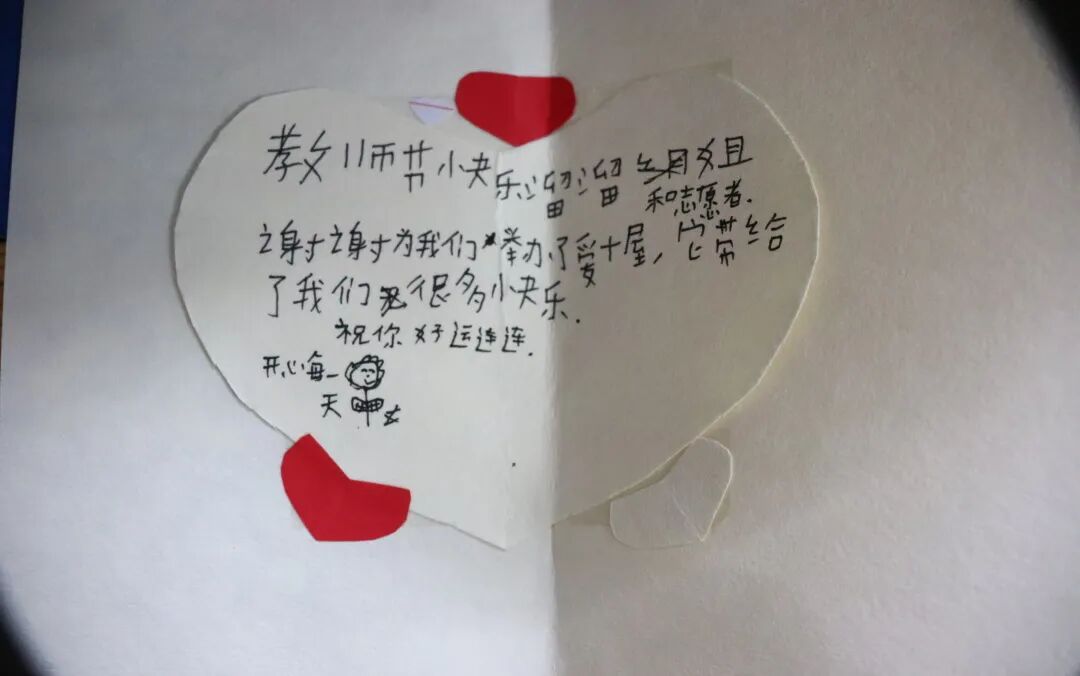 教师节快乐溜溜姐
和志愿者.
谢谢为我们举办了爱十屋,它带给
了我们很多快乐.
祝你好运连连.
开心每一
天